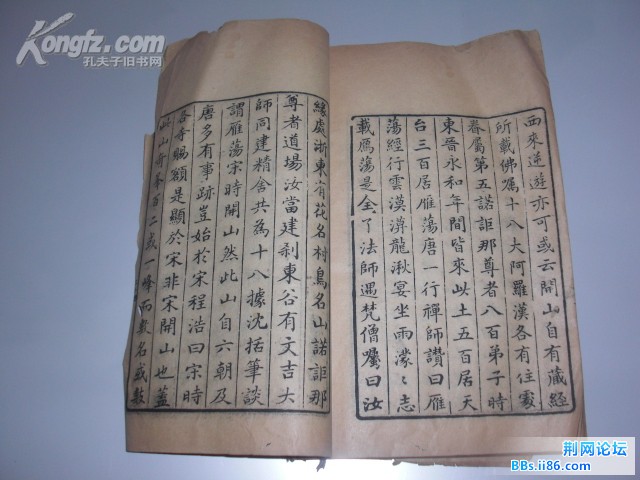 西來遊亦可或云開山自有藏經
所載佛囑十八大阿羅漢各有住處
眷屬第五諾詎那尊者八百弟子時
東晉永和年間皆來此土五百居天
台三百居雁蕩唐一行禪師讚曰雁
蕩經行雲漠漠龍湫宴坐雨濛〻志
載鴈蕩是全了法師遇梵僧囑曰汝
緣處浙東有花名村鳥名山諾詎那
尊者道場汝當建剎東谷有文吉大
師同建精舍共為十八據沈括筆談
謂雁蕩宋時開山然此山自六朝及
唐多有事跡豈始於宋程浩曰宋時
賜額是顯於宋非宋開山也蓋
山奇峯百二或一峰而數名或數
Kongfz.com
孔夫子旧书网
荆网论坛
BBs.ii86.com